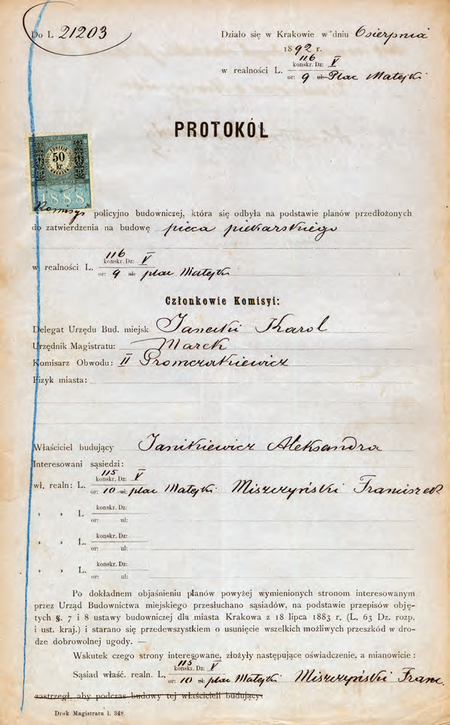 Do L. 21203
Działo się w Krakowie w dniu 6 sierpnia
1892 r.
w realności L. 116 konskr. Dz: V
or: 9 ul: Plac Matejki
PROTOKÓL
50
kr
1888
Komisyi policyjno budowniczej, która się odbyła na podstawie planów przedłożonych
do zatwierdzenia na budowę pieca piekarskiego
w realności L. 116 konskr. Dz: V
or: 9 ul: plac Matejki
Członkowie Komisyi:
Delegat Urzędu Bud. miejsk. Janecki Karol
Urzędnik Magistratu: Marek
Komisarz Obwodu: II Promczakiewicz
Fizyk miasta:
Właściciel budujący Janikiewicz Aleksandra
Interesowani sąsiedzi:
wł. realn: L. 115 konskr. Dz: V
or: 10 ul: plac Matejki Miszczyński Franciszek
" " L. konskr. Dz:
or: ul:
" " L. konskr. Dz:
or: ul:
" " L. konskr. Dz:
or: ul:
Po dokładnem objaśnieniu planów powyżej wymienionych stronom interesowanym
przez Urząd Budownictwa miejskiego przesłuchano sąsiadów, na podstawie przepisów obję-
tych §. 7 i 8 ustawy budowniczej dla miasta Krakowa z 18 lipca 1883 r. (L. 63 Dz. rozp.
i ust. kraj.) i starano się przedewszystkiem o usunięcie wszelkich możliwych przeszkód w dro-
dze dobrowolnej ugody. —
Wskutek czego strony interesowane, złożyły następujące oświadczenie, a mianowicie :
Sąsiad właść. realn. L. 115 konskr. Dz: V
or: 10 ul: plac Matejki Miszczyński Franc.
zastrzegł, aby podczas budowy tej właścicieli budujący
Druk Magistratu l. 348